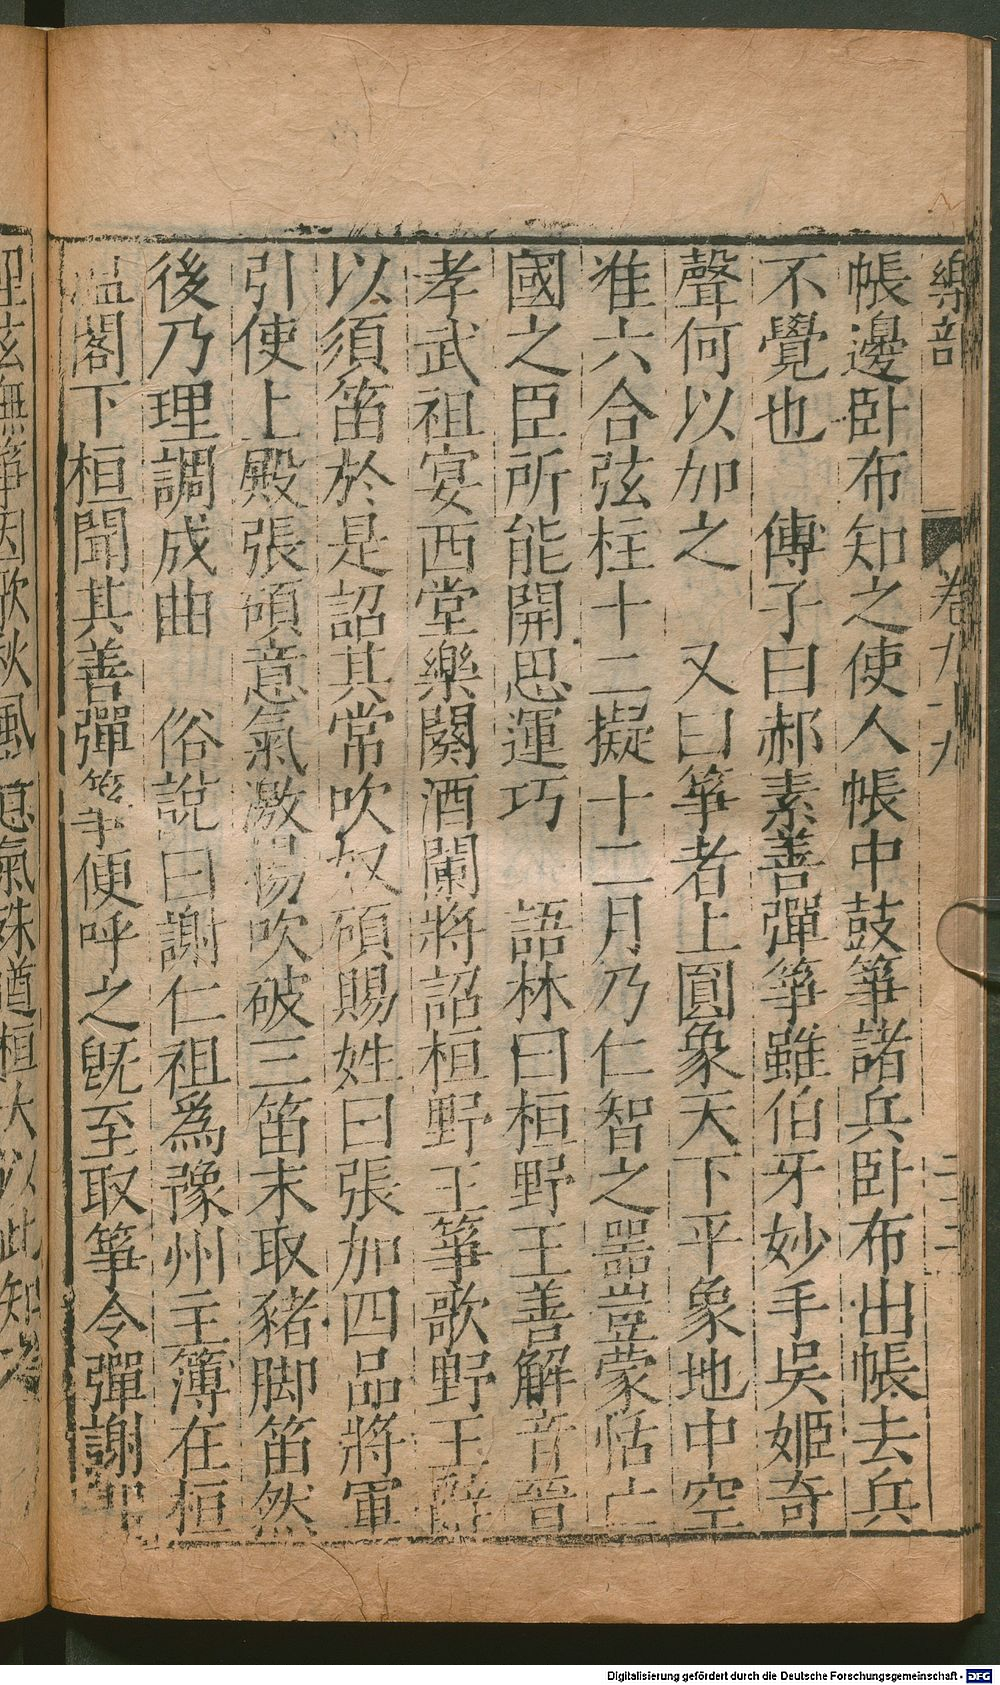 樂部 卷九 九
帳邊卧布知之使人帳中鼓箏諸兵卧布出帳去兵
不覺也 傅子曰郝素善彈箏雖伯牙妙手吳姬奇
聲何以加之 又曰箏者上圓象天下平象地中空
准六合弦柱十二擬十二月乃仁智之噐豈蒙恬亡
國之臣所能開思運巧 語林曰桓野王善解音晉
孝武祖宴西堂樂闋酒闌將詔桓野王箏歌野王辭
以須笛於是詔其常吹奴碩賜姓曰張加四品將軍
引使上殿張碩意氣激揚吹破三笛末取豬脚笛然
後乃理調成曲 俗說曰謝仁祖爲豫州主簿在桓
温閣下桓聞其善彈箏便呼之旣至取箏令彈謝即
理弦撫箏因歌秋風意氣殊遒桓大以此知之
Digitalisierung gefördert durch die Deutsche Forschungsgemeinschaft - DFG